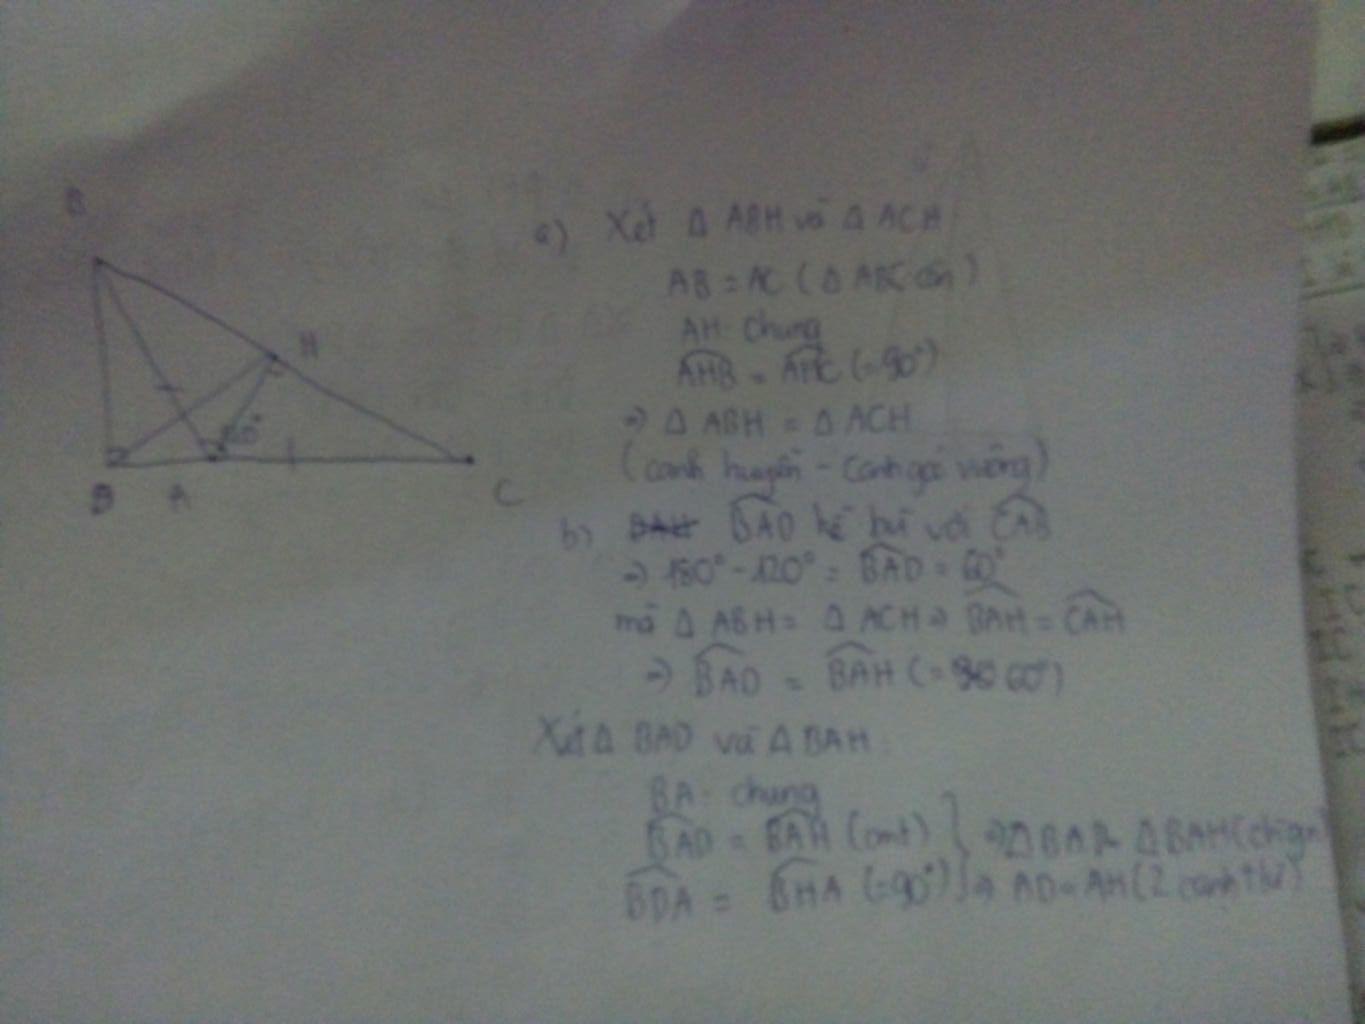 B
H
60°
D A C
a) Xét Δ ABH và Δ ACH
AB = AC (Δ ABC cân)
AH chung
AHB = AHC (=90°)
=> Δ ABH = Δ ACH
(cạnh huyền - cạnh góc vuông)
b) BAH BAD kề bù với CAB
=> 180° - 120° = BAD = 60°
mà Δ ABH = Δ ACH => BAH = CAH
=> BAD = BAH (= 60°)
Xét Δ BAD và Δ BAH:
BA chung
BAD = BAH (cmt) } => Δ BAD = Δ BAH
BDA = BHA (=90°) => AD = AH (2 cạnh t/ứ)